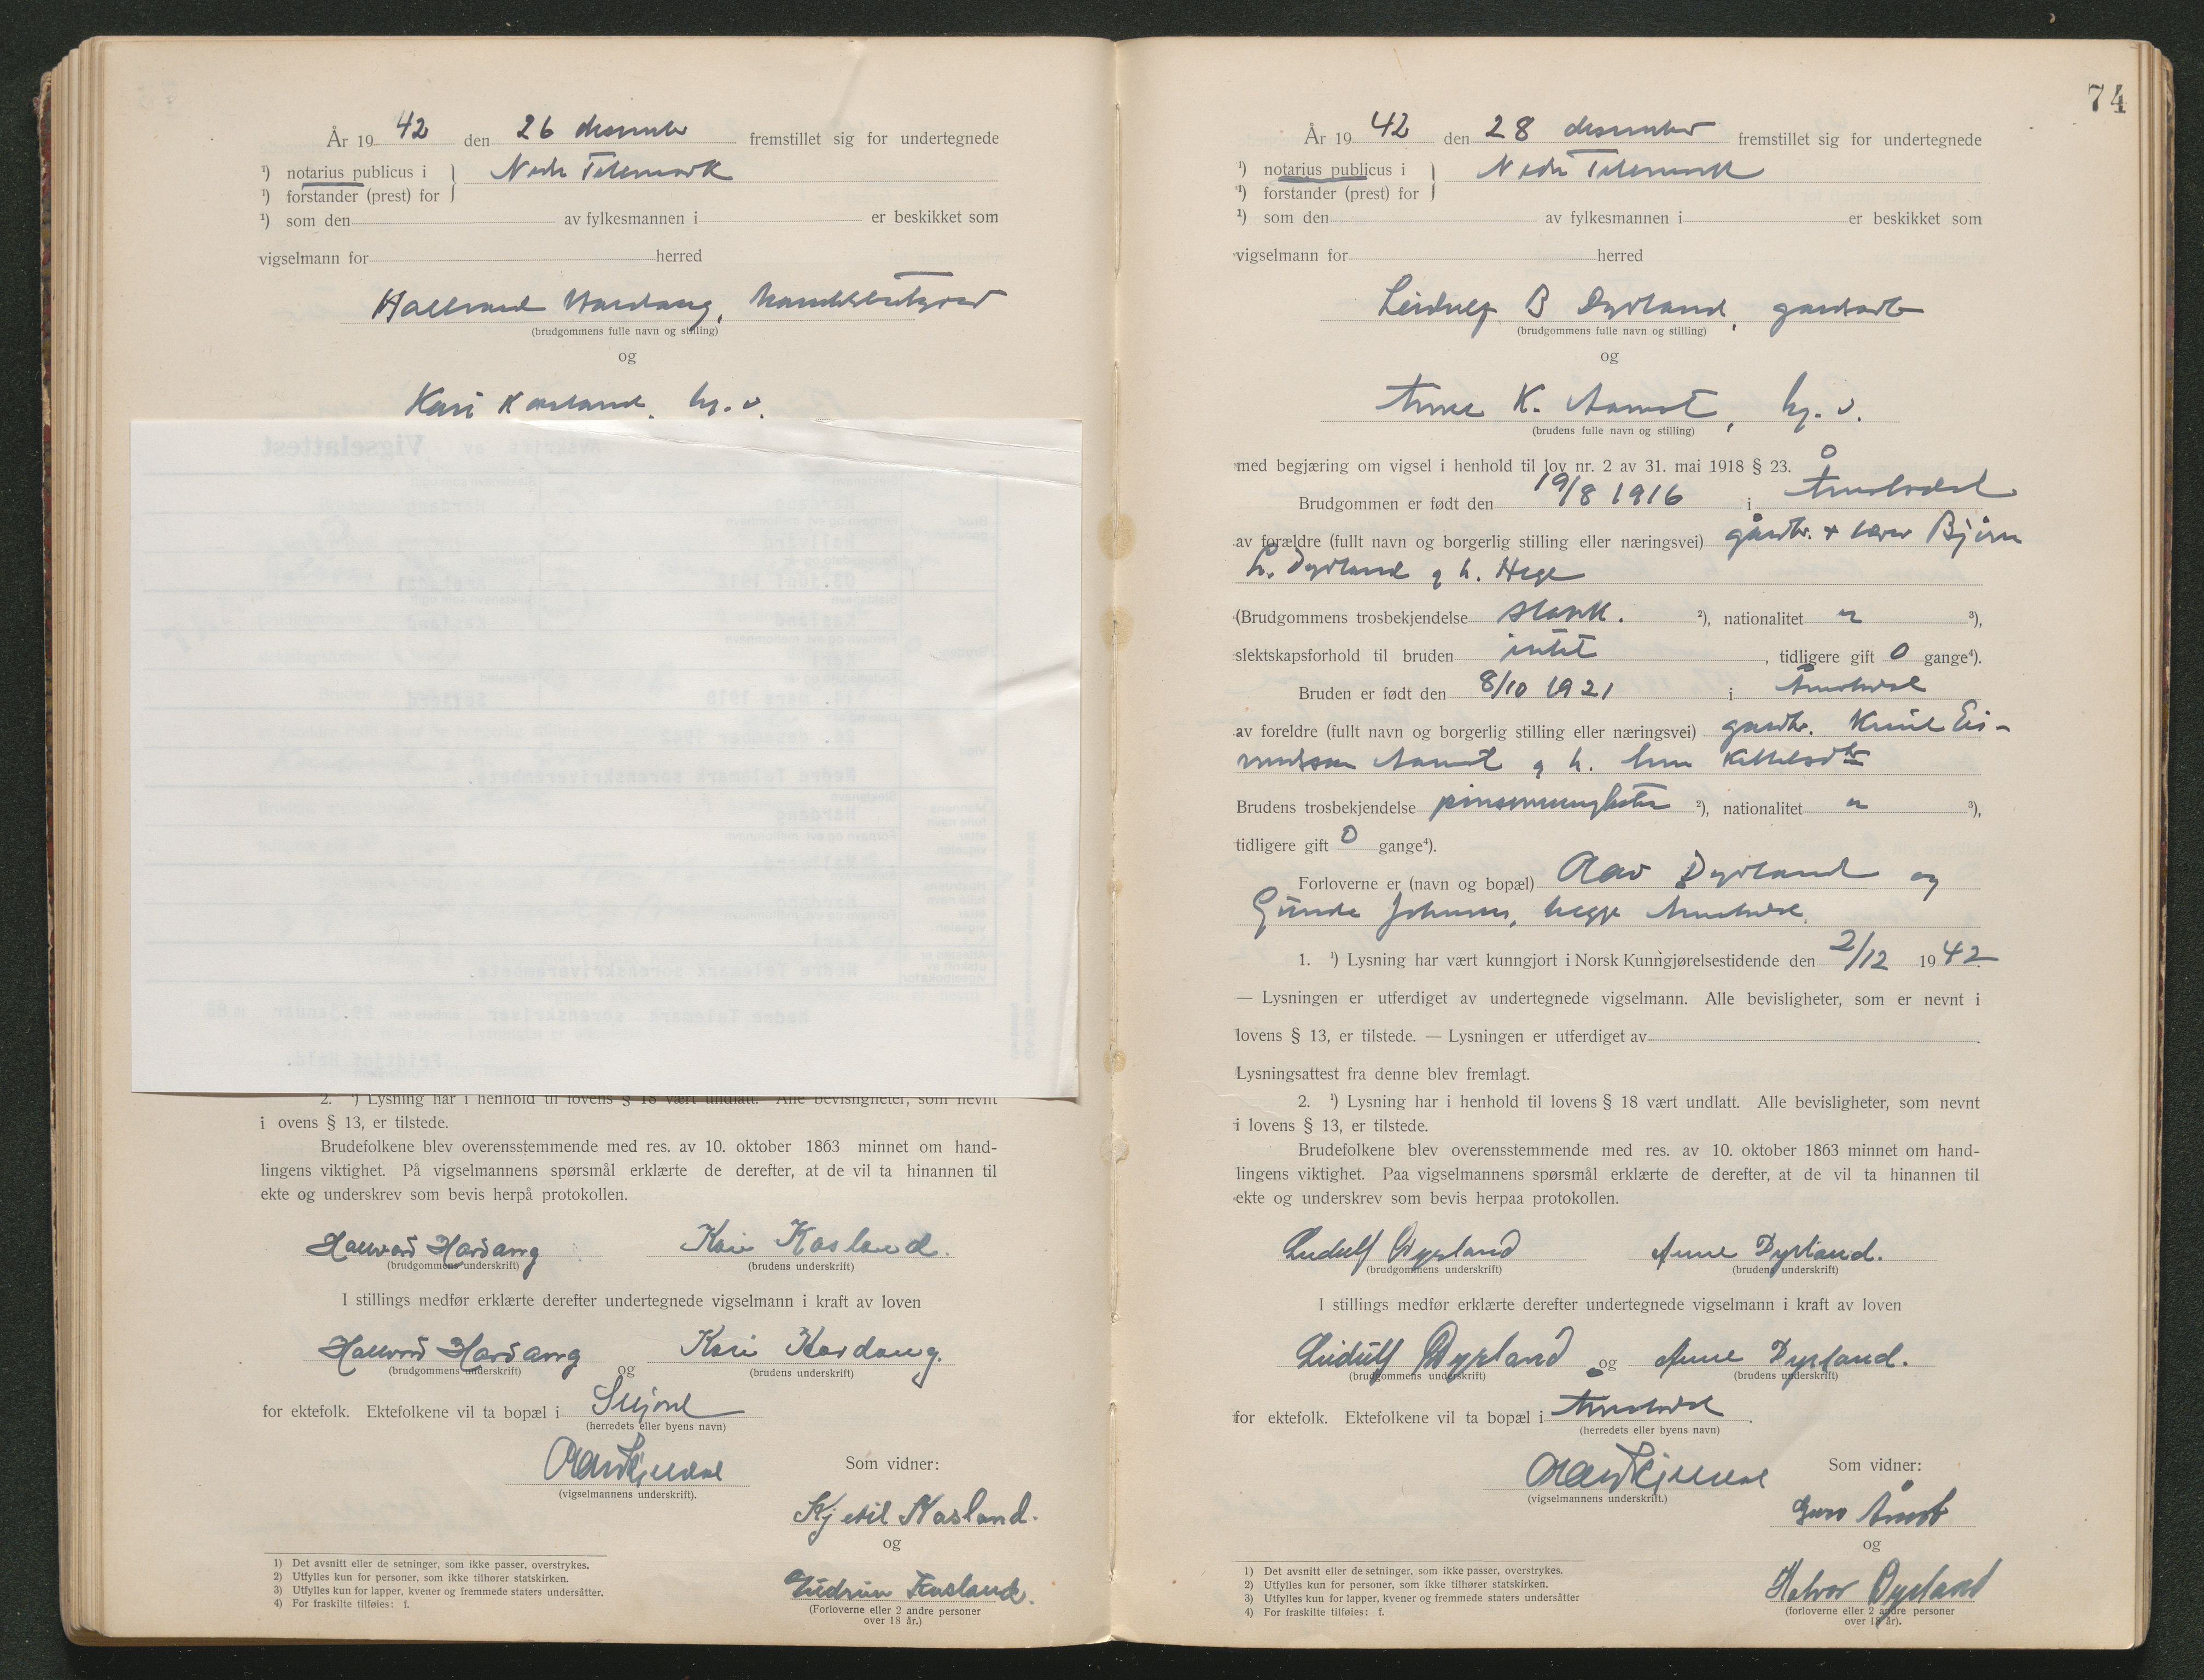 År 19 42 den 26 desember fremstillet sig for undertegnede
¹) notarius publicus i } Nedre Telemark
¹) forstander (prest) for
¹) som den av fylkesmannen i er beskikket som
vigselmann for herred
Hallvard Hardang,
(brudgommens fulle navn og stilling)
og
Kari Kasland, hj. v.
2. ¹) Lysning har i henhold til lovens § 18 vært undlatt. Alle bevisligheter, som nevnt
i ovens § 13, er tilstede.
Brudefolkene blev overensstemmende med res. av 10. oktober 1863 minnet om hand-
lingens viktighet. På vigselmannens spørsmål erklærte de derefter, at de vil ta hinannen til
ekte og underskrev som bevis herpå protokollen.
Hallvard Hardang Kari Kasland.
(brudgommens underskrift) (brudens underskrift)
I stillings medfør erklærte derefter undertegnede vigselmann i kraft av loven
Hallvard Hardang og Kari Hardang.
(brudgommens underskrift) (brudens underskrift)
for ektefolk. Ektefolkene vil ta bopæl i
(herredets eller byens navn)
Som vidner:
(vigselmannens underskrift).
Kjetil Kasland.
og
Gudrun Kasland.
(Forloverne eller 2 andre personer
over 18 år.)
1) Det avsnitt eller de setninger, som ikke passer, overstrykes.
2) Utfylles kun for personer, som ikke tilhører statskirken.
3) Utfylles kun for lapper, kvener og fremmede staters undersåtter.
4) For fraskilte tilføies: f.
74
År 19 42 den 28 desember fremstillet sig for undertegnede
¹) notarius publicus i } Nedre Telemark
¹) forstander (prest) for
¹) som den av fylkesmannen i er beskikket som
vigselmann for herred
Leidulf B Dyrland, gardsarb
(brudgommens fulle navn og stilling)
og
Anne K. Aamot, hj. v.
(brudens fulle navn og stilling)
med begjæring om vigsel i henhold til lov nr. 2 av 31. mai 1918 § 23.
Brudgommen er født den 19/8 1916 i Åmotsdal
av forældre (fullt navn og borgerlig stilling eller næringsvei) gårdbr. + lærer Bjørn
L. Dyrland og h. Hege
(Brudgommens trosbekjendelse statsk. ²), nationalitet n ³),
slektskapsforhold til bruden intet, tidligere gift 0 gange⁴).
Bruden er født den 8/10 1921 i Åmotsdal
av foreldre (fullt navn og borgerlig stilling eller næringsvei) gardbr. Knut Eis-
Aamot og h.
Brudens trosbekjendelse ²), nationalitet n ³),
tidligere gift 0 gange⁴).
Forloverne er (navn og bopæl) Olav Dyrland og
Gunde Johnsen, begge Åmotsdal.
1. ¹) Lysning har vært kunngjort i Norsk Kunngjørelsestidende den 2/12 1942.
— Lysningen er utferdiget av undertegnede vigselmann. Alle bevisligheter, som er nevnt i
lovens § 13, er tilstede. — Lysningen er utferdiget av .
Lysningsattest fra denne blev fremlagt.
2. ¹) Lysning har i henhold til lovens § 18 vært undlatt. Alle bevisligheter, som nevnt
i lovens § 13, er tilstede.
Brudefolkene blev overensstemmende med res. av 10. oktober 1863 minnet om hand-
lingens viktighet. Paa vigselmannens spørsmål erklærte de derefter, at de vil ta hinannen til
ekte og underskrev som bevis herpaa protokollen.
Leidulf Dyrland Anne Dyrland.
(brudgommens underskrift) (brudens underskrift)
I stillings medfør erklærte derefter undertegnede vigselmann i kraft av loven
Leidulf Dyrland og Anne Dyrland.
(brudgommens underskrift) (brudens underskrift)
for ektefolk. Ektefolkene vil ta bopæl i Åmotsdal.
(herredets eller byens navn)
Som vidner:
(vigselmannens underskrift.)
Guro Åmot
og
Halvor Dyrland
(forloverne eller 2 andre personer
over 18 år).
1) Det avsnitt eller de setninger, som ikke passer, overstrykes.
2) Utfylles kun for personer, som ikke tilhører statskirken.
3) Utfylles kun for lapper, kvener og fremmede staters undersåtter
4) For fraskilte tilføies: f.